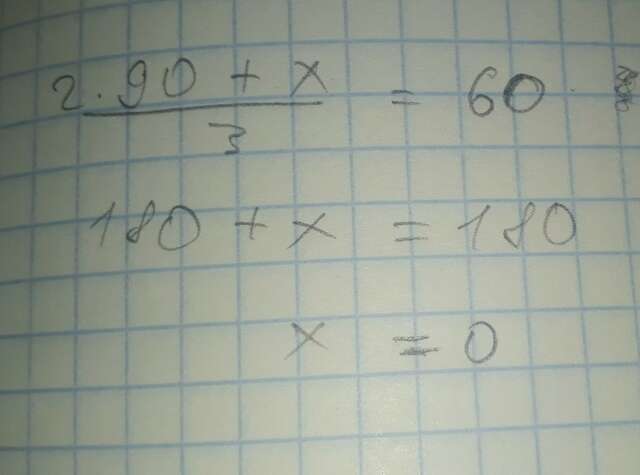 2·90 + x / 3 = 60
180 + x = 180
x = 0